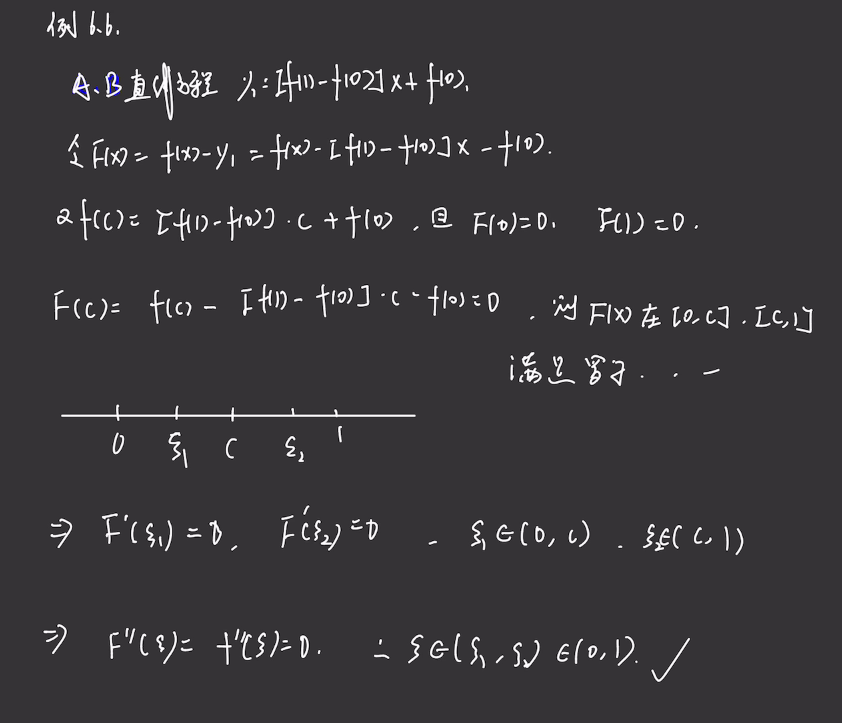 例 6.6.
A.B直线方程 y₁=[f(1)-f(0)]x+f(0).
令F(x)=f(x)-y₁=f(x)-[f(1)-f(0)]x-f(0).
又f(c)=[f(1)-f(0)]·c+f(0),且 F(0)=0, F(1)=0.
F(c)= f(c)-[f(1)-f(0)]·c-f(0)=0.对F(x)在[0,c].[c,1]
满足罗尔...
0 ξ₁ c ξ₂ 1
⇒ F'(ξ₁)=0. F'(ξ₂)=0 . ξ₁∈(0,c). ξ₂∈(c,1)
⇒ F''(ξ)=f''(ξ)=0. ∴ ξ∈(ξ₁,ξ₂)∈(0,1). ✓